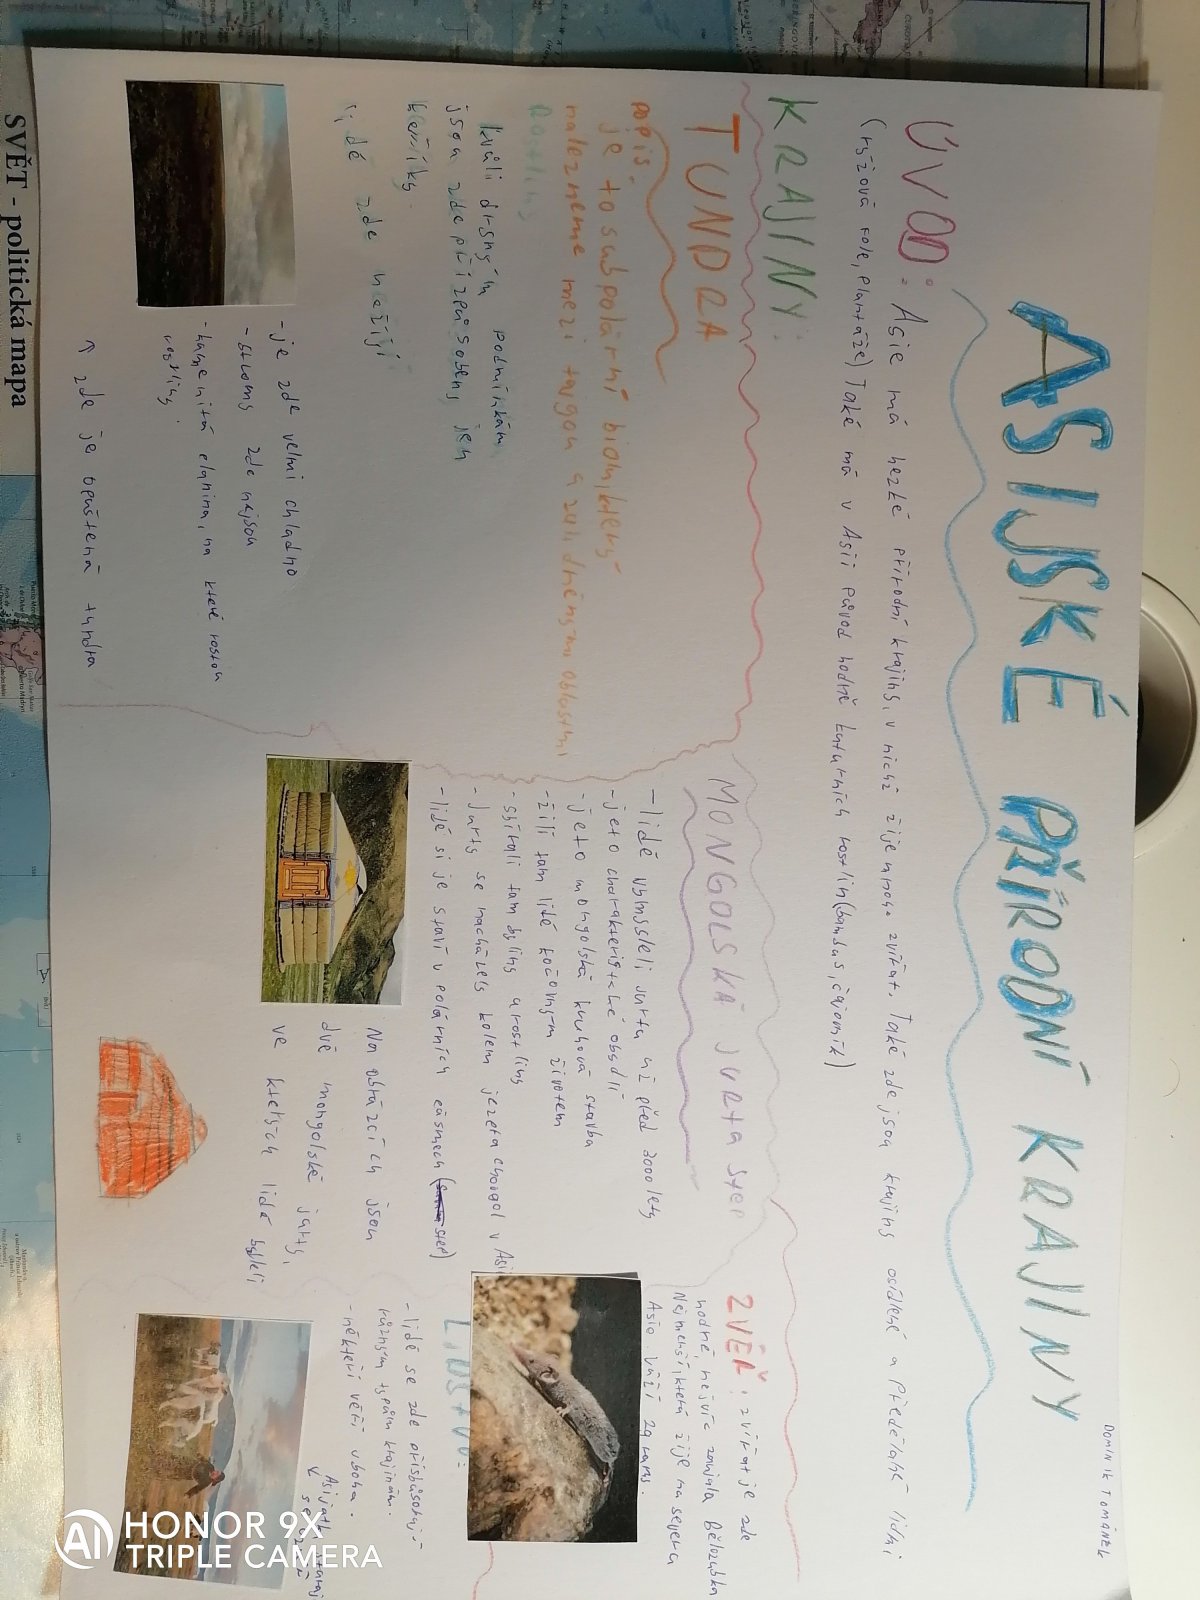 DOMINIK TOMÁNEK
ASIJSKÉ PŘÍRODNÍ KRAJINY
ÚVOD: Asie má hezké přírodní krajiny, v nichž žije mnoho zvířat. Také zde jsou krajiny osídlené a předělané lidmi
(rýžová pole, plantáže) Také má v Asii původ hodně kuturních rostlin (bambus, čajovník)
KRAJINY:
TUNDRA
popis:
je to subpolární biom, který
nalezneme mezi tajgou a zaledněnými oblastmi
Rostliny
kvůli drsným podmínkám
jsou zde přizpůsobeny jen
keříky.
Lidé zde nežijí
- je zde velmi chladno
- stromy zde nejsou
- kamenitá planina, na které rostou
rostliny.
↑ zde je opuštěná tundra
MONGOLSKÁ JURTA step
- lidé vymysleli jurtu už před 3000 lety
- je to charakteristické obydlí
- je to mongolská kruhová stavba
- žili tam lidé kočovným životem
- sbírali tam byliny a rostliny
- Jurty se nacházely kolem jezera chovgol v Asii
- lidé si je staví v polárních pásmech (step)
Na obrázcích jsou
dvě mongolské jurty,
ve kterých lidé bydleli
ZVĚŘ: zvířat je zde
hodně, nejvíc zaujala Bělozubka
Nejmenší, která žije na severu
Asie. Váží 2 gramy.
LIDSTVO:
- lidé se zde přizpůsobují
různým typům krajinám.
- někteří věří v boha.
SVĚT - politická mapa
HONOR 9X
TRIPLE CAMERA